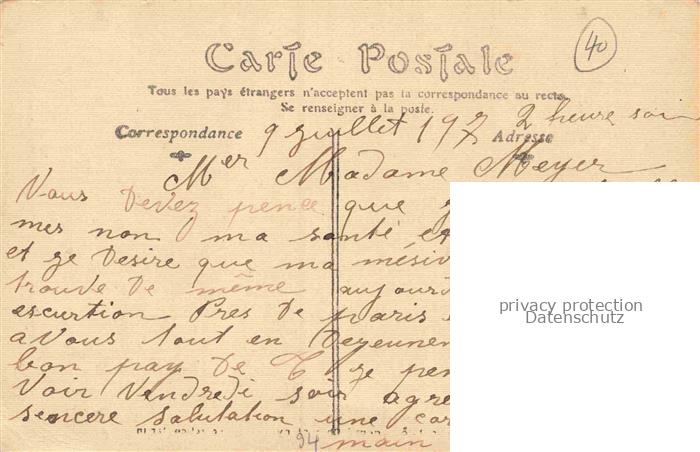 40
Carte Postale
Tous les pays étrangers n'acceptent pas la correspondance au recto.
Se renseigner à la poste.
Correspondance
Adresse
9 juillet 197 2 heure soir
Mer Madame Meyer
Vous Devez pence que
mes non ma santé et
et je Desire que ma
trouve De même
escurtion Pres De paris
a Vous tout en Dejeunen
bon pay De je
Voir Vendredi soir
sencere salutation une
94 main
privacy protection
Datenschutz